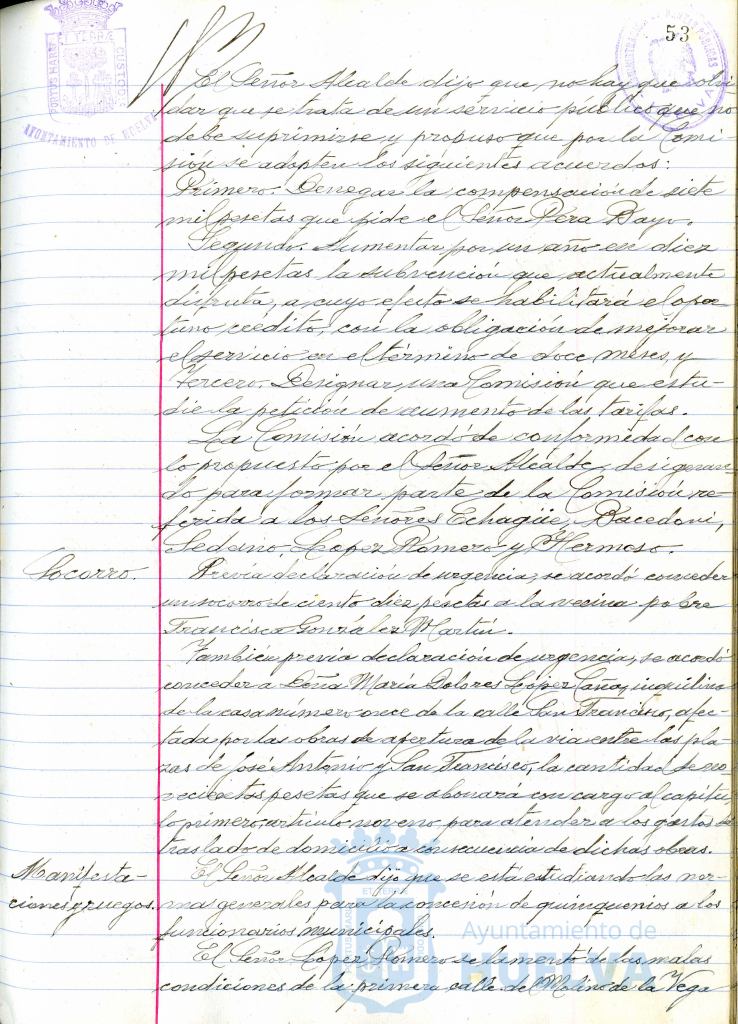 53
AYUNTAMIENTO DE HUELVA
El Señor Alcalde dijo que no hay que olvi-
dar que se trata de un servicio público que no
debe suprimirse y propuso que por la Comi-
sión se adopten los siguientes acuerdos:
Primero. Denegar la compensación de siete
mil pesetas que pide el Señor Pera Bayo.
Segundo. Aumentar por un año en diez
mil pesetas la subvención que actualmente
disfruta, a cuyo efecto se habilitará el opor-
tuno crédito, con la obligación de mejorar
el servicio en el término de doce meses, y
Tercero. Designar una Comisión que estu-
die la petición de aumento de las tarifas.
La Comisión acordó de conformidad con
lo propuesto por el Señor Alcalde, designan-
do para formar parte de la Comisión re-
ferida a los Señores Echagüe, Bacedoni,
Sedeino, López Romero y Hermoso.
Socorro.
Previa declaración de urgencia, se acordó conceder
un socorro de ciento diez pesetas a la vecina pobre
Francisca González Martín.
También previa declaración de urgencia, se acordó
conceder a Doña María Dolores López inquilina
de la casa número once de la calle San Francisco, afec-
tada por las obras de apertura de la vía entre las pla-
zas de José Antonio y San Francisco, la cantidad de no-
vecientas pesetas que se abonará con cargo al capítu-
lo primero, artículo noveno para atender a los gastos de
traslado de domicilio a consecuencia de dichas obras.
Manifesta-
ciones y ruegos.
El Señor Alcalde dijo que se está estudiando las nor-
ma generales para la concesión de quinquenios a los
funcionarios municipales.
El Señor López Romero se lamentó de las malas
condiciones de la primera calle del Molino de la Vega
Ayuntamiento de
HUELVA